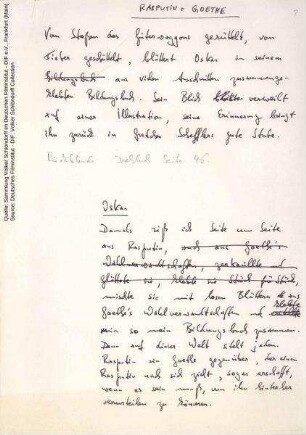 RASPUTIN + GOETHE
Vom Stoßen des Güterwaggons gerüttelt, vom
Fieber geschüttelt, blättert Oskar in seinem
Bildungsbuch aus vielen Ausschnitten zusammenge-
klebten Bildungsbuch. Sein Blick verweilt
auf einer Illustration, seine Erinnerung bringt
ihn zurück in Gretchen Schefflers gute Stube.
Rückblende Drehbuch Seite 45
Oskar
Damals riß ich Seite um Seite
aus Rasputin, und aus Goethe's
Wahlverwandtschaften,
glättete sie, Stück für Stück,
mischte sie mit losen Blättern aus
Goethe's Wahlverwandtschaften und klebte
mir so mein Bildungsbuch zusammen.
Denn auf dieser Welt steht jedem
Rasputin ein Goethe gegenüber, der einen
Rasputin nach sich zieht, sogar erschafft,
wenn es sein muß, um ihn hinterher
verurteilen zu können.
Quelle: Sammlung Volker Schlöndorff im Deutschen Filminstitut - DIF e.V., Frankfurt (Main)
Source: Deutsches Filminstitut - DIF, Volker Schlöndorff Collection